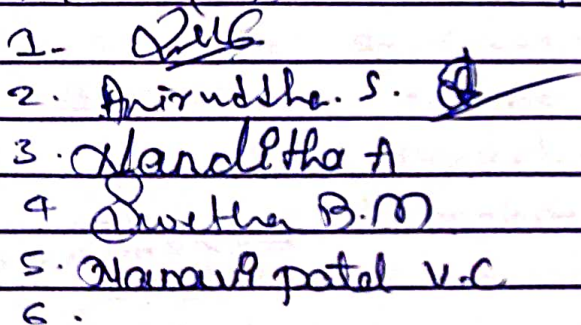 1-
2. Aniruddha. S.
3. Nanditha A
4 Swetha B.M
5. Manavi patel V.C
6.